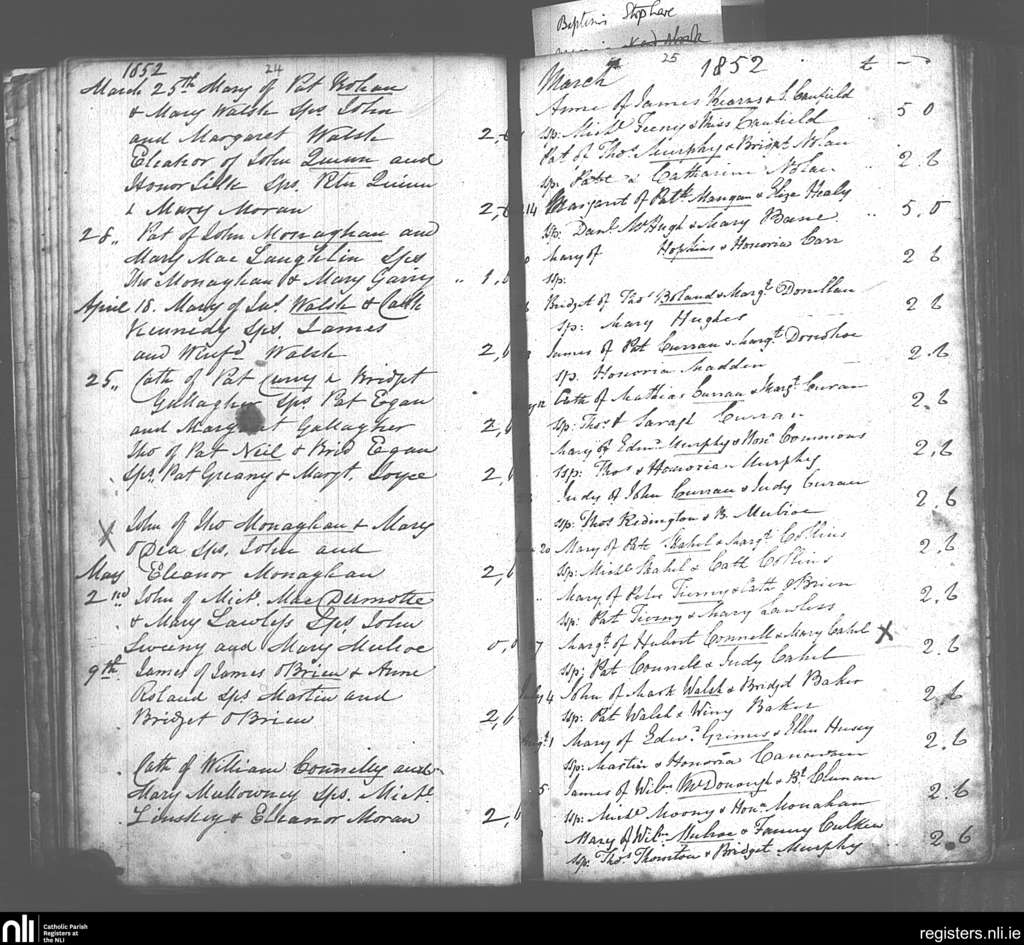 Baptisms Stephen
1852
24
March 25th Mary of Pat Nohan
& Mary Walsh Sps. John
and Margaret Walsh 2,6
Eleanor of John Quinn and
Honor Silk Sps. Peter Quinn
& Mary Moran 2,6
28,, Pat of John Monaghan and
Mary Mac Laughlin Sps
Tho Monaghan & Mary Garry ,, 1,6
April 18. Mary of Jas. Walsh & Cath
Kennedy Sps. James
and Winfd. Walsh 2,6
25,, Cath of Pat Curry & Bridget
Gallagher Sps. Pat Egan
and Margaret Gallagher 2,6
Tho of Pat Neil & Brid Egan
Sps. Pat Greany & Margt. Joyce 2,6
X John of Tho Monaghan & Mary
O Dea Sps. John and
May Eleanor Monaghan 2,6
2nd John of Michl. Mac Dermotte
& Mary Lawless Sps. John
Sweeny and Mary Mulroe 0,0
9th. James of James OBrien & Anne
Roland Sps Martin and
Bridget O Brien 2,6
Cath of William Connelly and
Mary Mullowney Sps. Michl.
Linskey & Eleanor Moran 2,6
25
March 1852 £
Anne of James Kearns & S. Caufield 5 0
sp: Michl Feeny & Miss Caufield
Pat of Thos. Murphy & Bridgt Nolan 2.6
sp: Pat & Catharine Nolan
14 Margaret of Patk Mangan & Elize Healy 5,0
sp: Danl. McHugh & Mary Bane
Mary of Hopkins & Honoria Carr 2 6
sp:
Bridget of Thos Boland & Margt. Donellan 2 6
sp: Mary Hughes
James of Pat Curran & Margt. Donohoe 2.6
sp. Honoria Madden
Cath of Mathias Curran & Margt. Curan 2.6
sp: Thos & Sarah Curran
Mary of Edwd Murphy & Honr Commons 2,6
sp: Thos & Honoria Murphy
Judy of John Curran & Judy Curan 2.6
sp: Thos Redington & B. Mulroe
20 Mary of Pat Kahel & Margt Collins 2.6
sp: Michl Kahel & Cath Collins
Mary of Peter Tierny & Cath OBrien 2.6
sp: Pat Tierny & Mary Lawless
7 Margt. of Hubert Connell & Mary Cahel X 2.6
sp: Pat Connell & Judy Cahel
July 4 John of Mark Walsh & Bridget Baker 2.6
sp: Pat Walsh & Winy Baker
Augt. 1 Mary of Edwd. Grimes & Ellen Hussey 2.6
sp: Martin & Honoria Canavan
5 James of Wilm McDonough & Bt. Clunan 2.6
sp: Michl Moony & Honr Monahan
Mary of Wilm Mulroe & Fanny Culken 2.6
sp: Thos Thornton & Bridget Murphy
nli Catholic Parish
Registers at
the NLI
registers.nli.ie